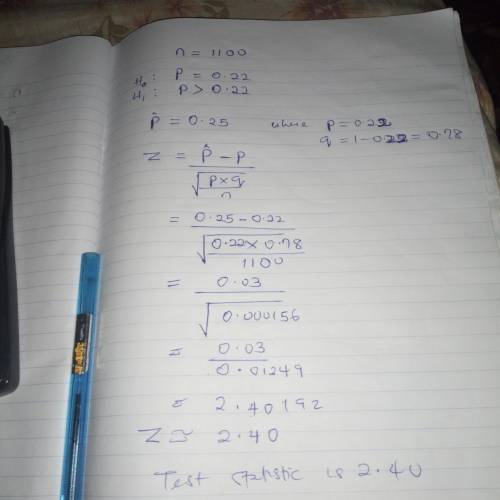 n = 1100
H₀: P = 0.22
H₁: P > 0.22
p̂ = 0.25 where p = 0.22
q = 1 - 0.22 = 0.78
Z = p̂ - p / √(p × q / n)
= 0.25 - 0.22 / √(0.22 × 0.78 / 1100)
= 0.03 / √0.000156
= 0.03 / 0.01249
= 2.40192
Z ≅ 2.40
Test statistic is 2.40